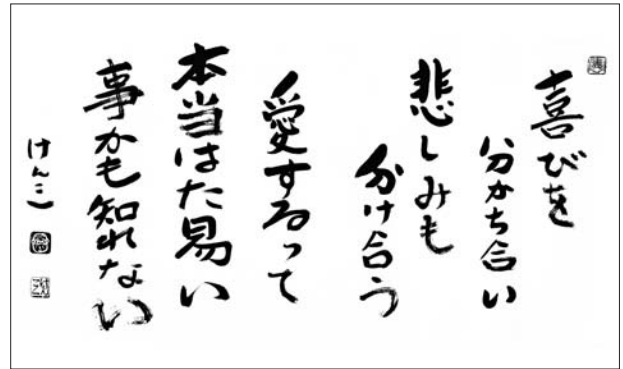 喜びを
分かち合い
悲しみも
分け合う
愛するって
本当はた易い
事かも知れない
けんこう